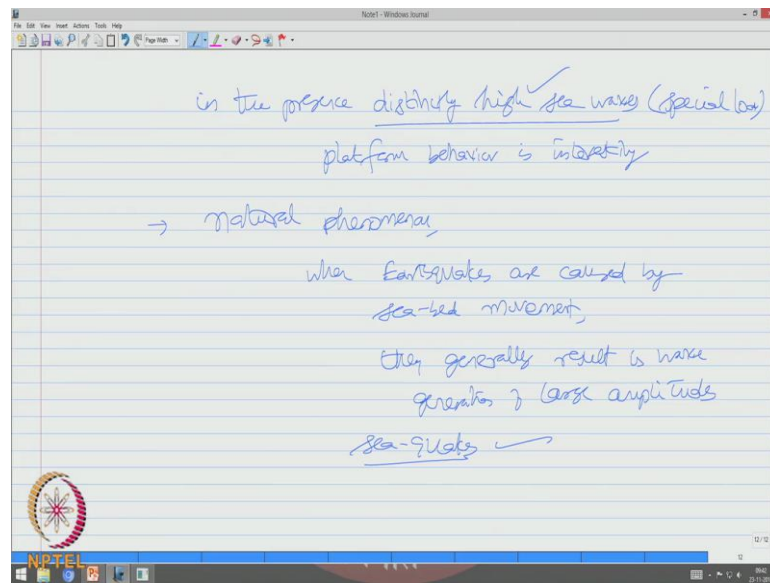 Note1 - Windows Journal
File Edit View Insert Actions Tools Help
Page Width
in the presence distinctly high sea waves (special load)
platform behavior is interesting
→ natural phenomenon,
when Earthquakes are caused by
sea-bed movement,
they generally result is wave
generation of large amplitudes
sea-quakes
12/12
12
NPTEL
09:42